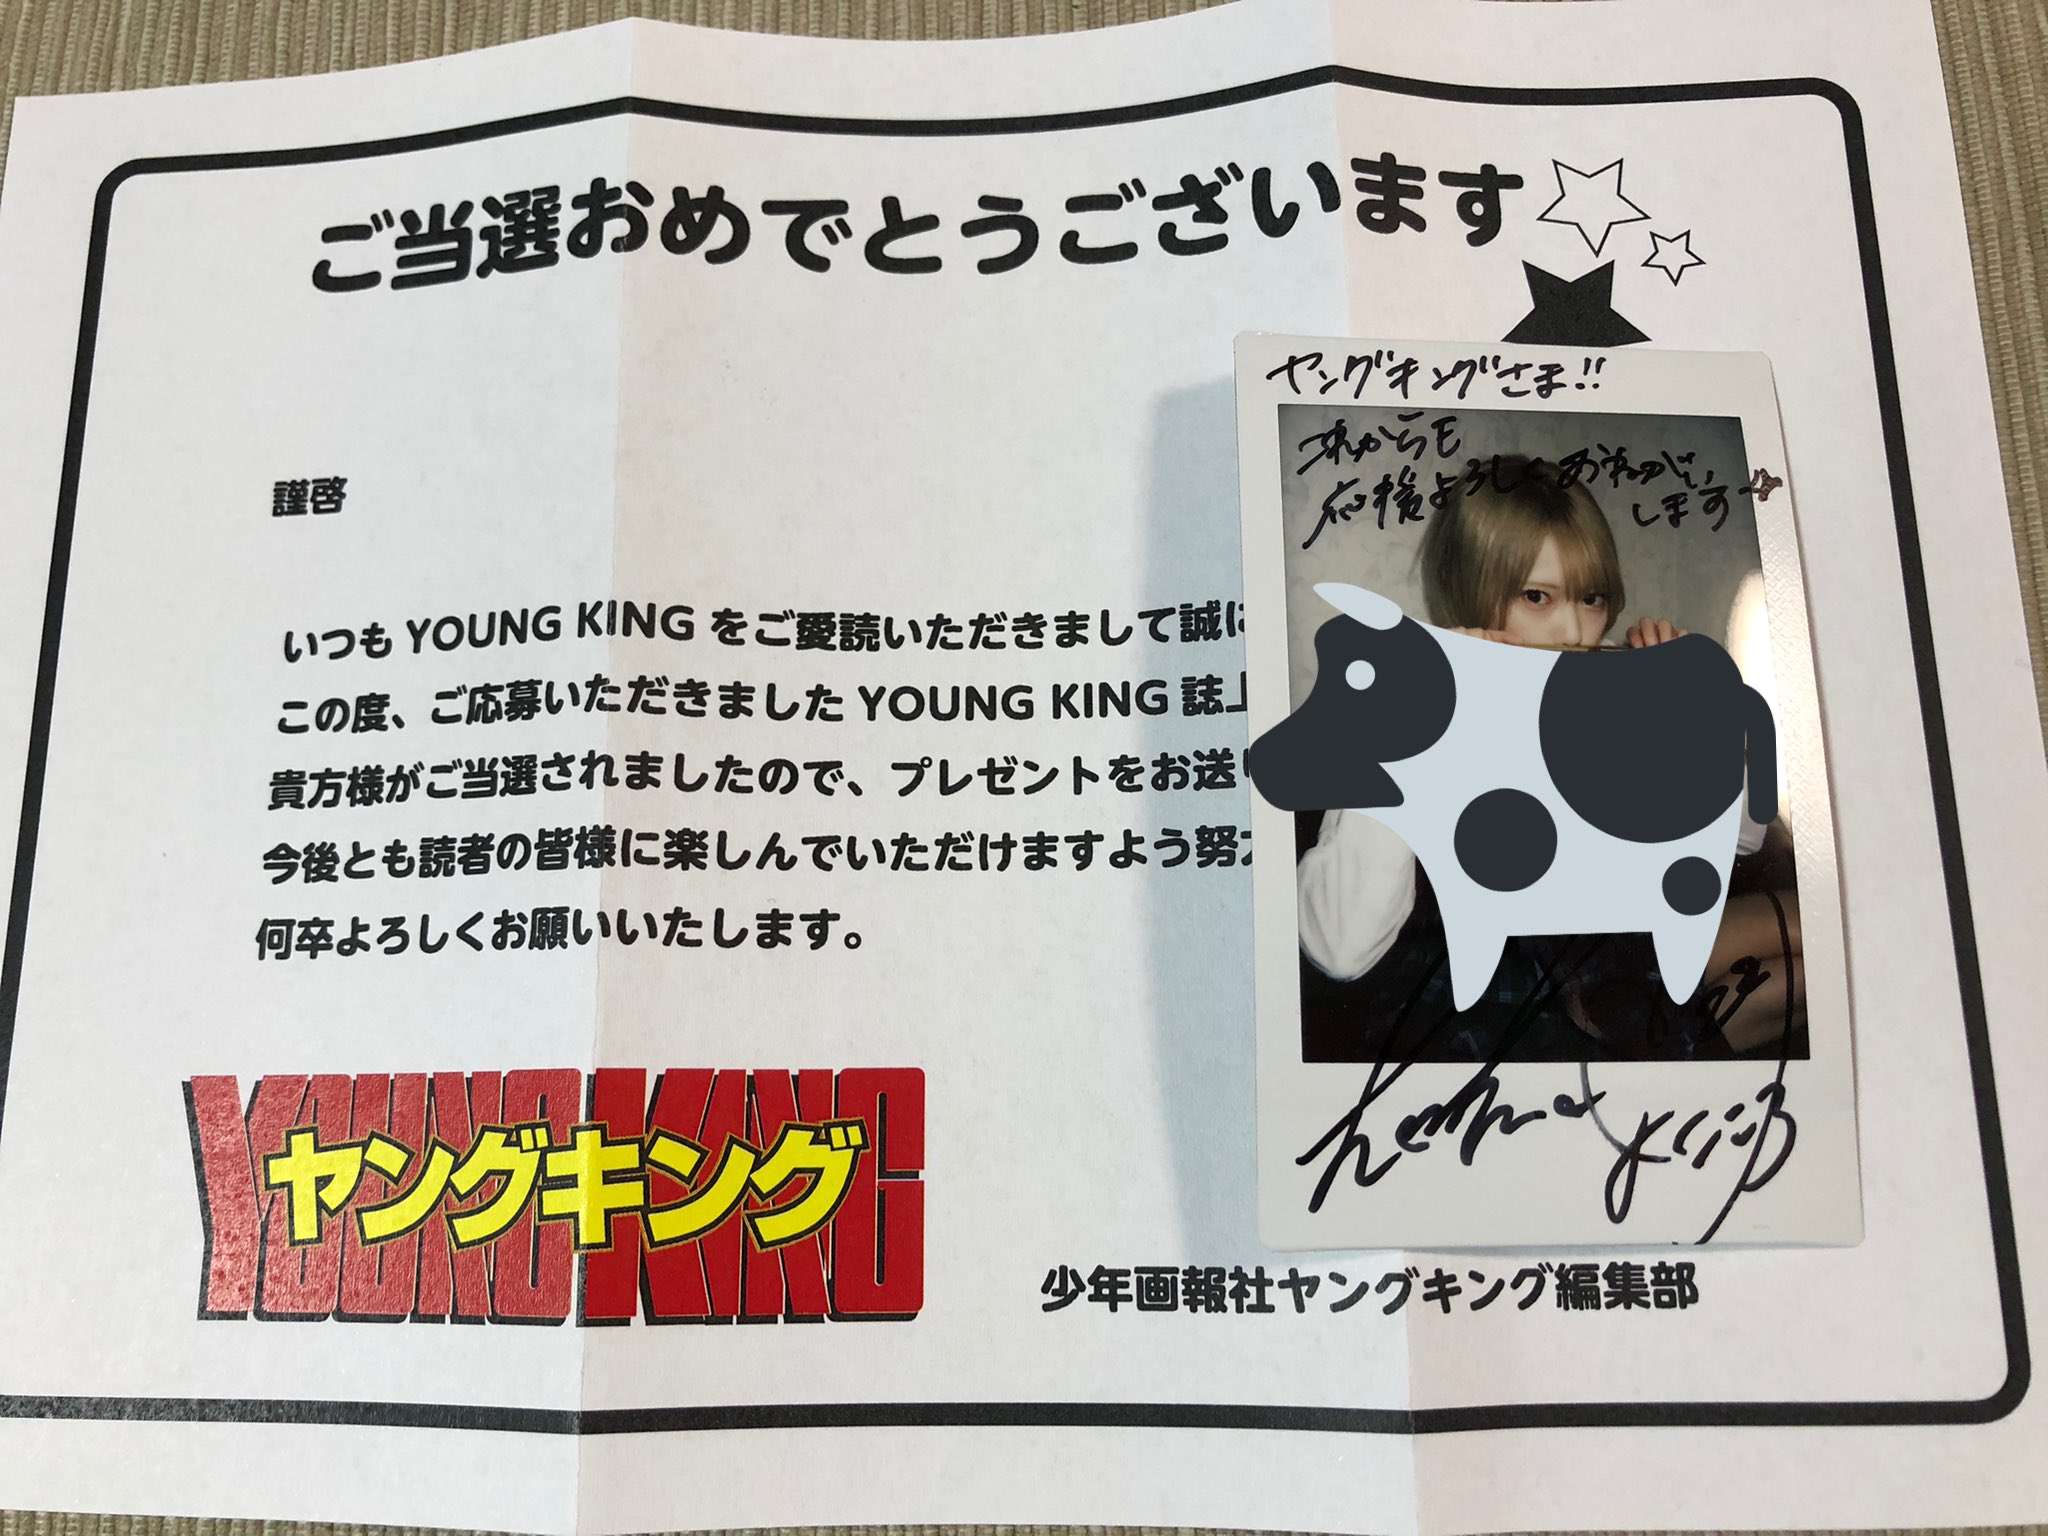 ご当選おめでとうございます
謹啓
いつも YOUNG KING をご愛読いただきまして誠に
この度、ご応募いただきました YOUNG KING 誌上
貴方様がご当選されましたので、プレゼントをお送り
今後とも読者の皆様に楽しんでいただけますよう努力
何卒よろしくお願いいたします。
YOUNG KING
ヤングキング
少年画報社ヤングキング編集部
ヤングキングさま!!
これからも
応援よろしくおねがい
します